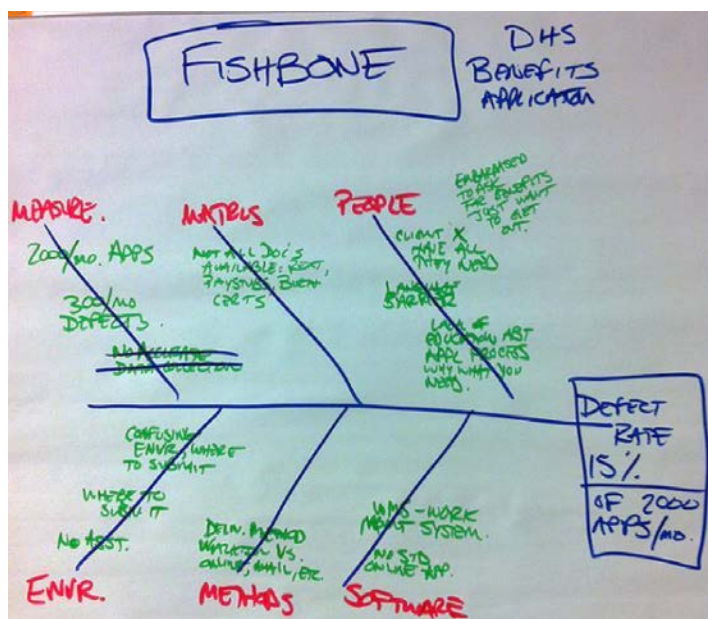 FISHBONE
DHS
BENEFITS
APPLICATION
MEASURE.
2000/mo. APPS
300/mo
DEFECTS.
NO ACCURATE
DATA COLLECTION
MATRLS
NOT ALL DOC'S
AVAILABLE: RENT,
PAYSTUBS, BIRTH
CERTS
PEOPLE
EMBARASSED
TO ASK
FOR BENEFITS
JUST WANT
TO GET
OUT.
CLIENT X
HAVE ALL
THEY NEED
LANGUAGE
BARRIER
LACK OF
EDUCATION ABT
APPL PROCESS
WHY WHAT YOU
NEED.
DEFECT
RATE
15%
OF 2000
APPS/mo.
CONFUSING
ENVR, WHERE
TO SUBMIT
WHERE TO
SUBM IT
NO ASST.
ENVR.
DELIV. METHOD
WALK-IN VS.
ONLINE, MAIL, ETC.
METHODS
WMS-WORK
MGMT SYSTEM.
NO STD
ONLINE APP.
SOFTWARE